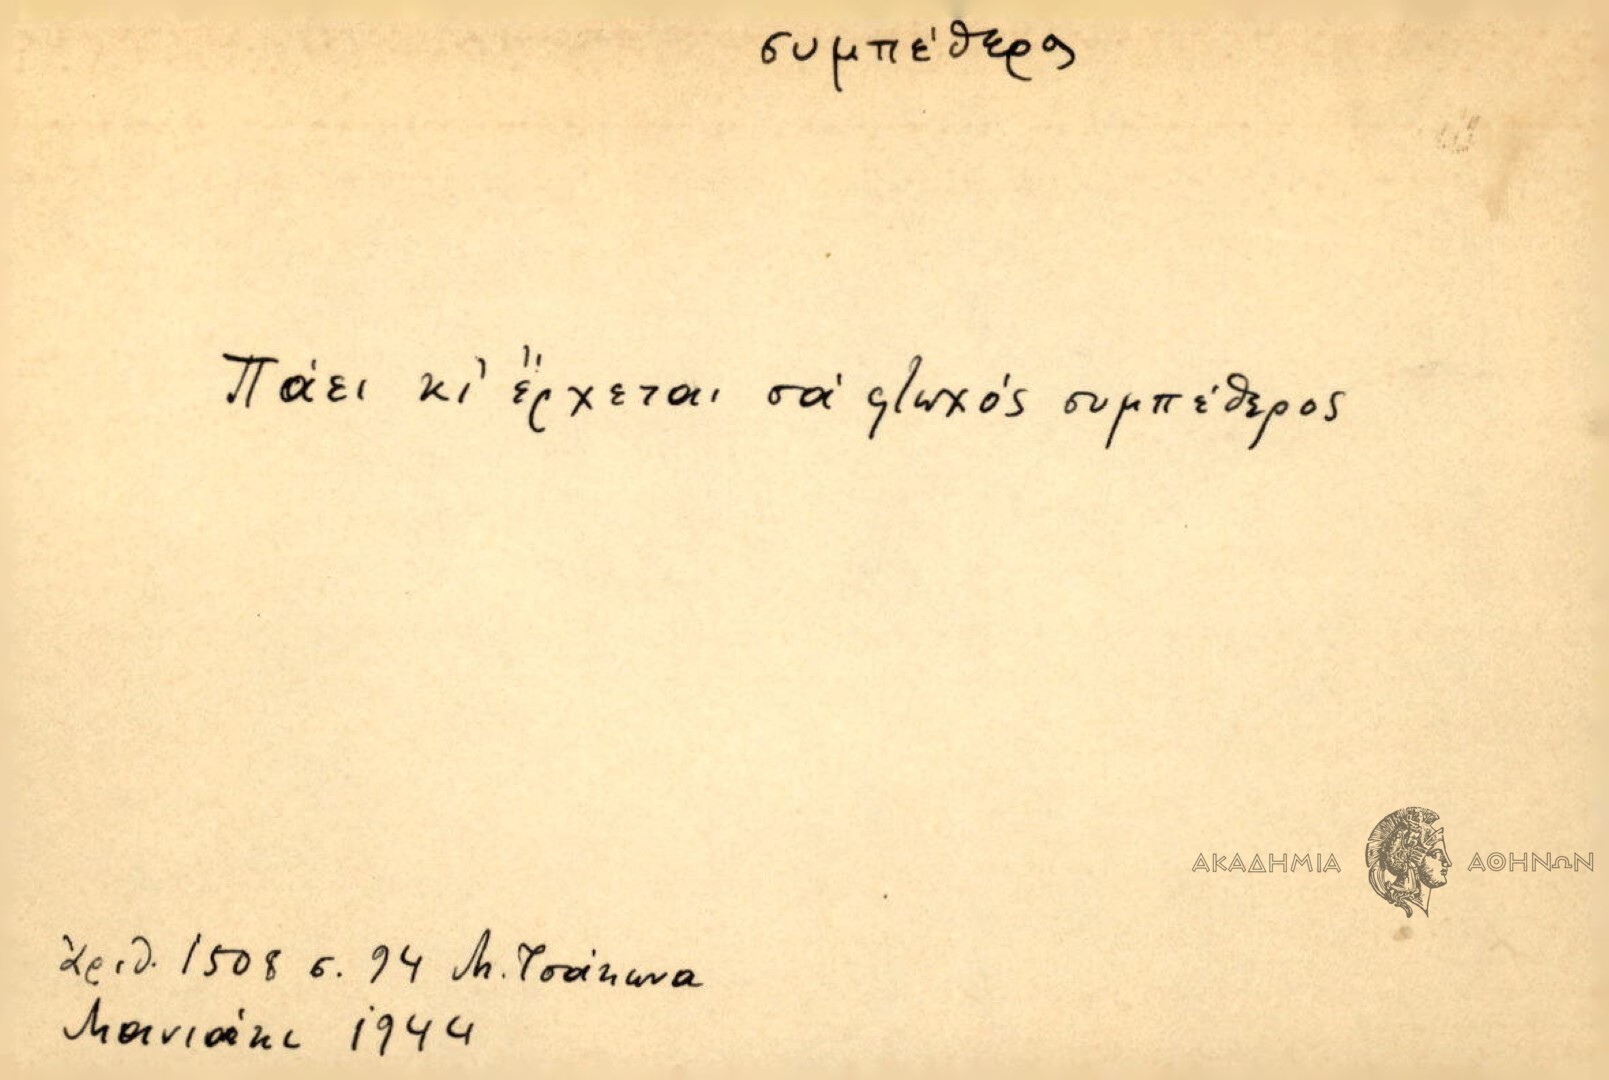 συμπέθερος
Πάει κι' ἔρχεται σά φτωχός συμπέθερος
ΑΚΑΔΗΜΙΑ ΑΘΗΝΩΝ
ἀριθ. 1508 σ. 94 Μ. Τσάκωνα
Μανιάκι 1944